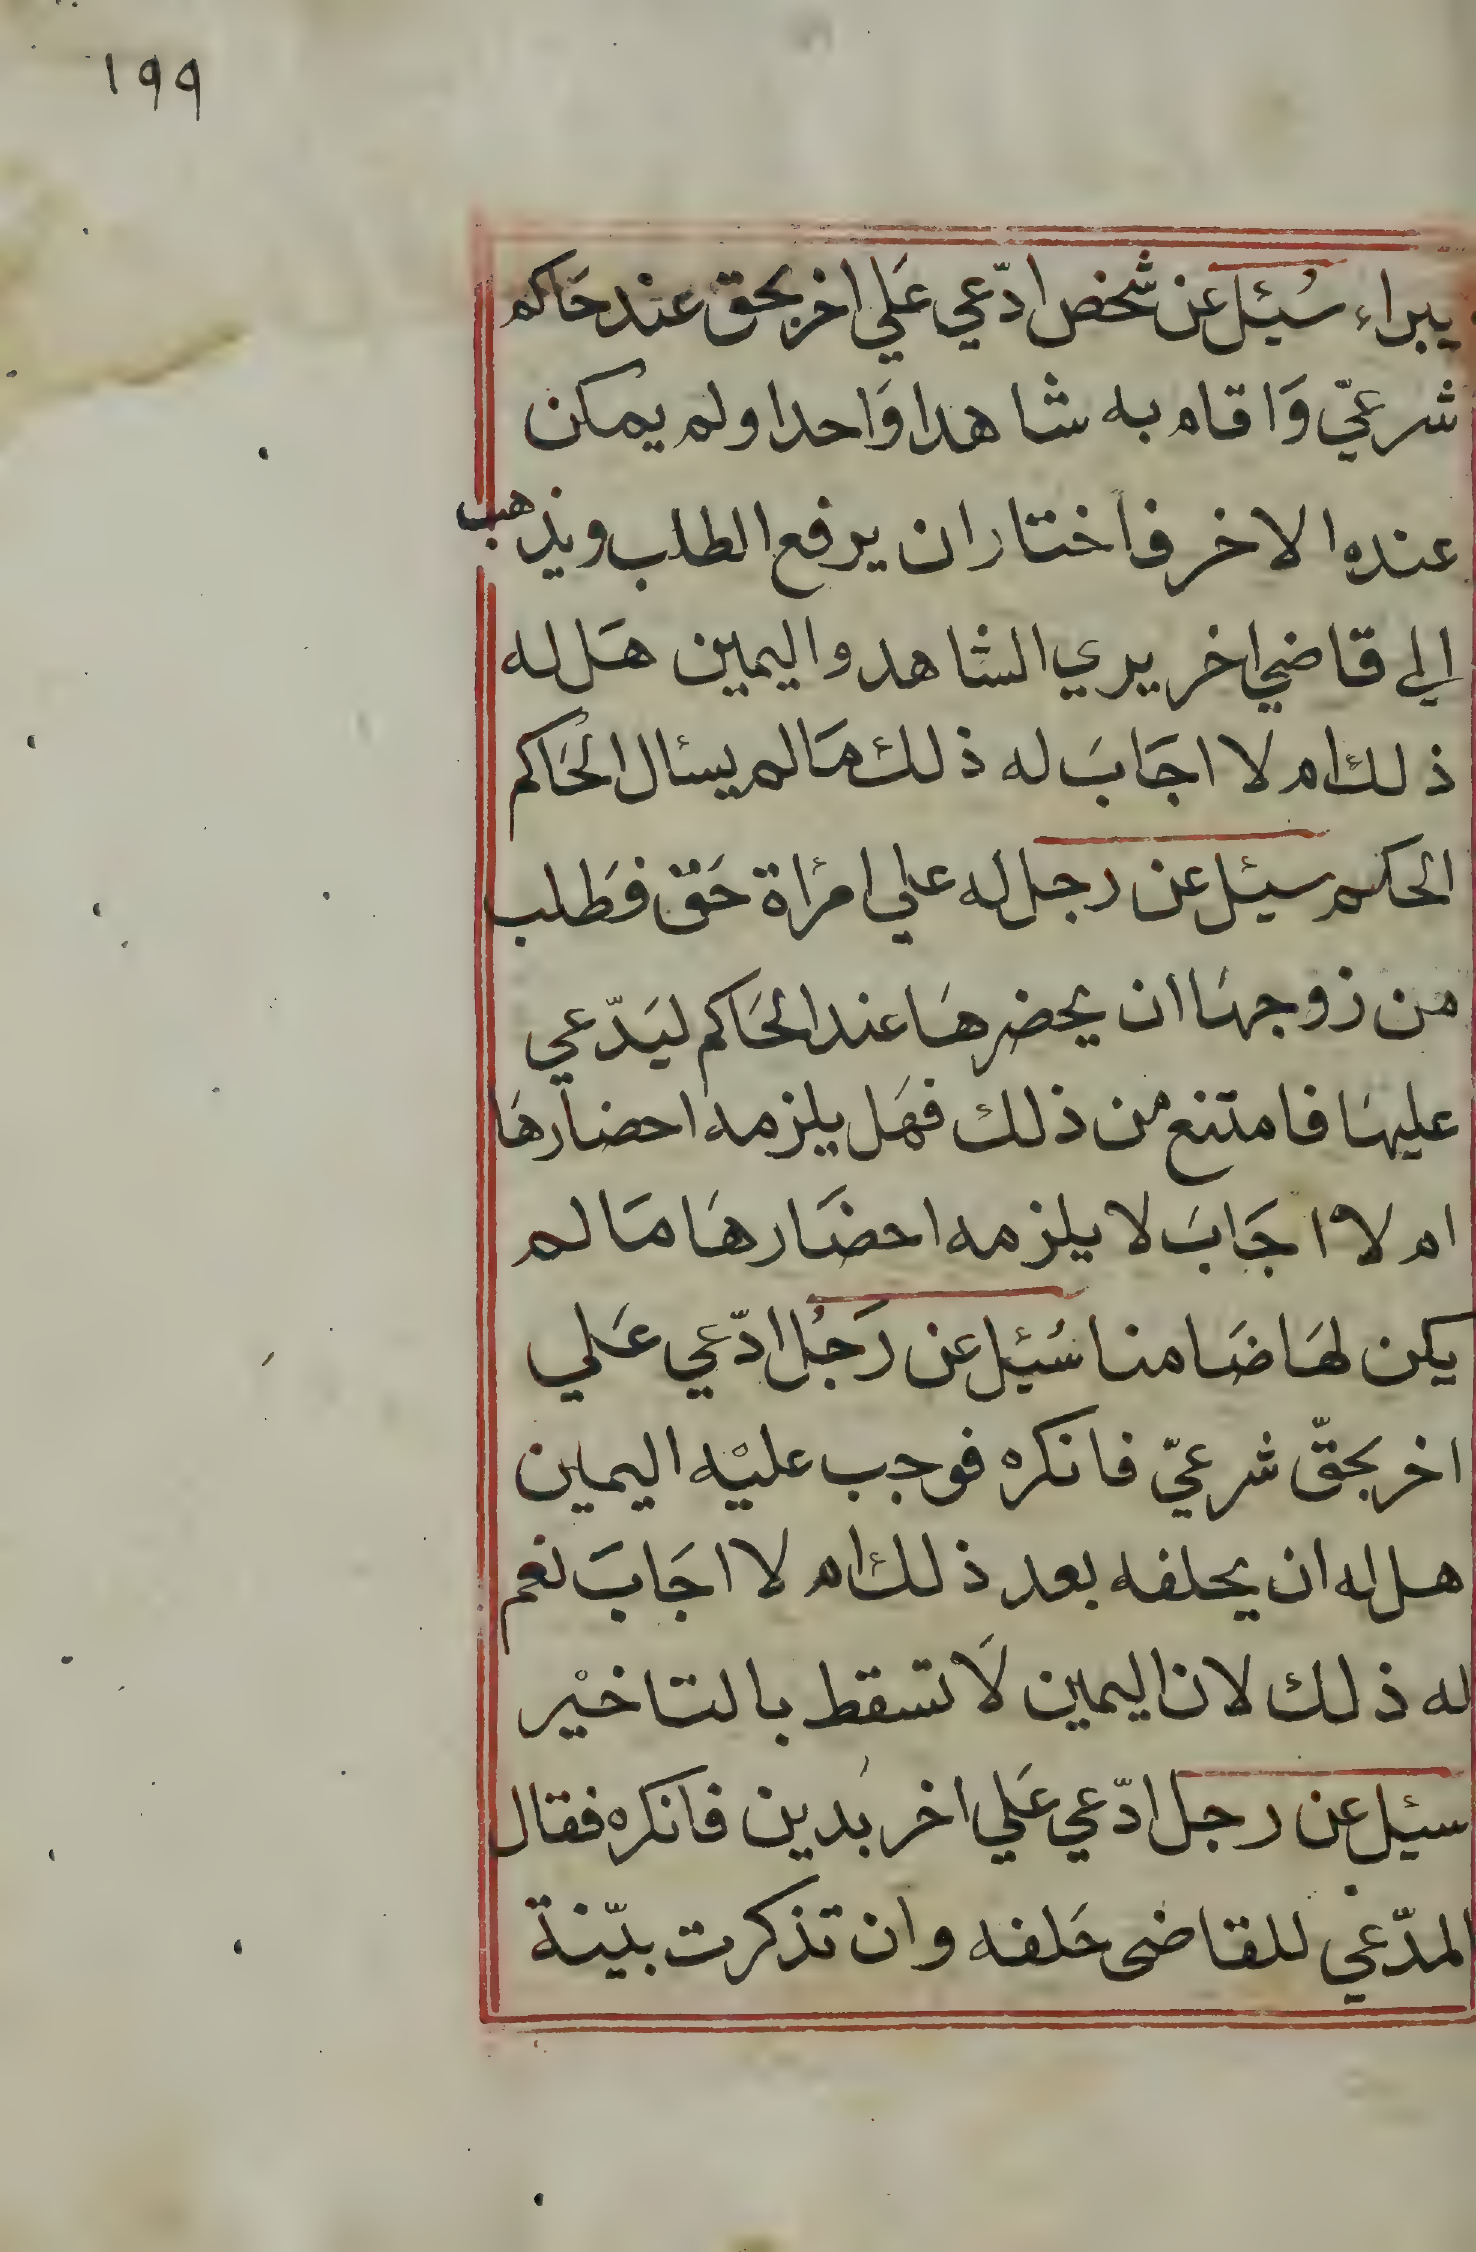 ١٩٩
يبراء سُئِل عن شخص ادّعي عَلي اخر بحق عند حَاكم
شرعيّ وَاقام به شاهدا وَاحدا ولم يمكن
عنده الاخر فاختار ان يرفع الطلب ويذهب
إلي قاضي اخر يري الشاهد واليمين هَل له
ذلك ام لا اجَابَ له ذلك مَا لم يسئال الحَاكم
الحكم سئِل عن رجل له علي امرأة حَق فطَلب
من زوجهَا ان يحضرهَا عند الحَاكم ليَدّعي
عليهَا فامتنع من ذلك فهَل يلزمه احضارهَا
ام لا اجَابَ لا يلزمه احضَارهَا مَا لم
يكن لهَا ضَامنا سُئِل عن رَجُل ادّعي عَلي
اخر بحقّ شرعيّ فانكره فوجب عليْه اليمين
هل له ان يحلفه بعد ذلك ام لا اجَابَ نعم
له ذلك لان اليمين لَا تسقط بالتاخيْر
سئِل عن رجل ادّعي عَلي اخر بدين فانكره فقال
المدّعي للقاضى حَلفه وان تذكرت بيّنة